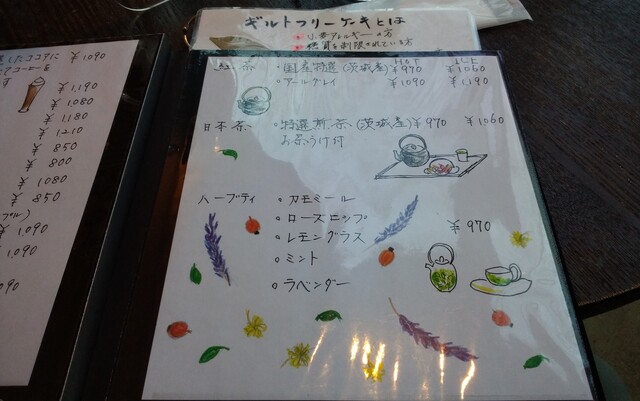 ギルトフリーケーキとは
小麦アレルギーの方
糖質を制限されている方
HOT ICE
紅茶 国産特選(茨城産) ¥970 ¥1060
アールグレイ ¥1090 ¥1,190
日本茶 特選煎茶(茨城産) ¥970 ¥1060
お茶うけ付
ハーブティ カモミール
ローズヒップ
レモングラス ¥970
ミント
ラベンダー
¥1090
¥1,190
¥1,080
¥1,180
¥1210
¥850
¥800
¥1080
¥850
¥1,090
¥1,090